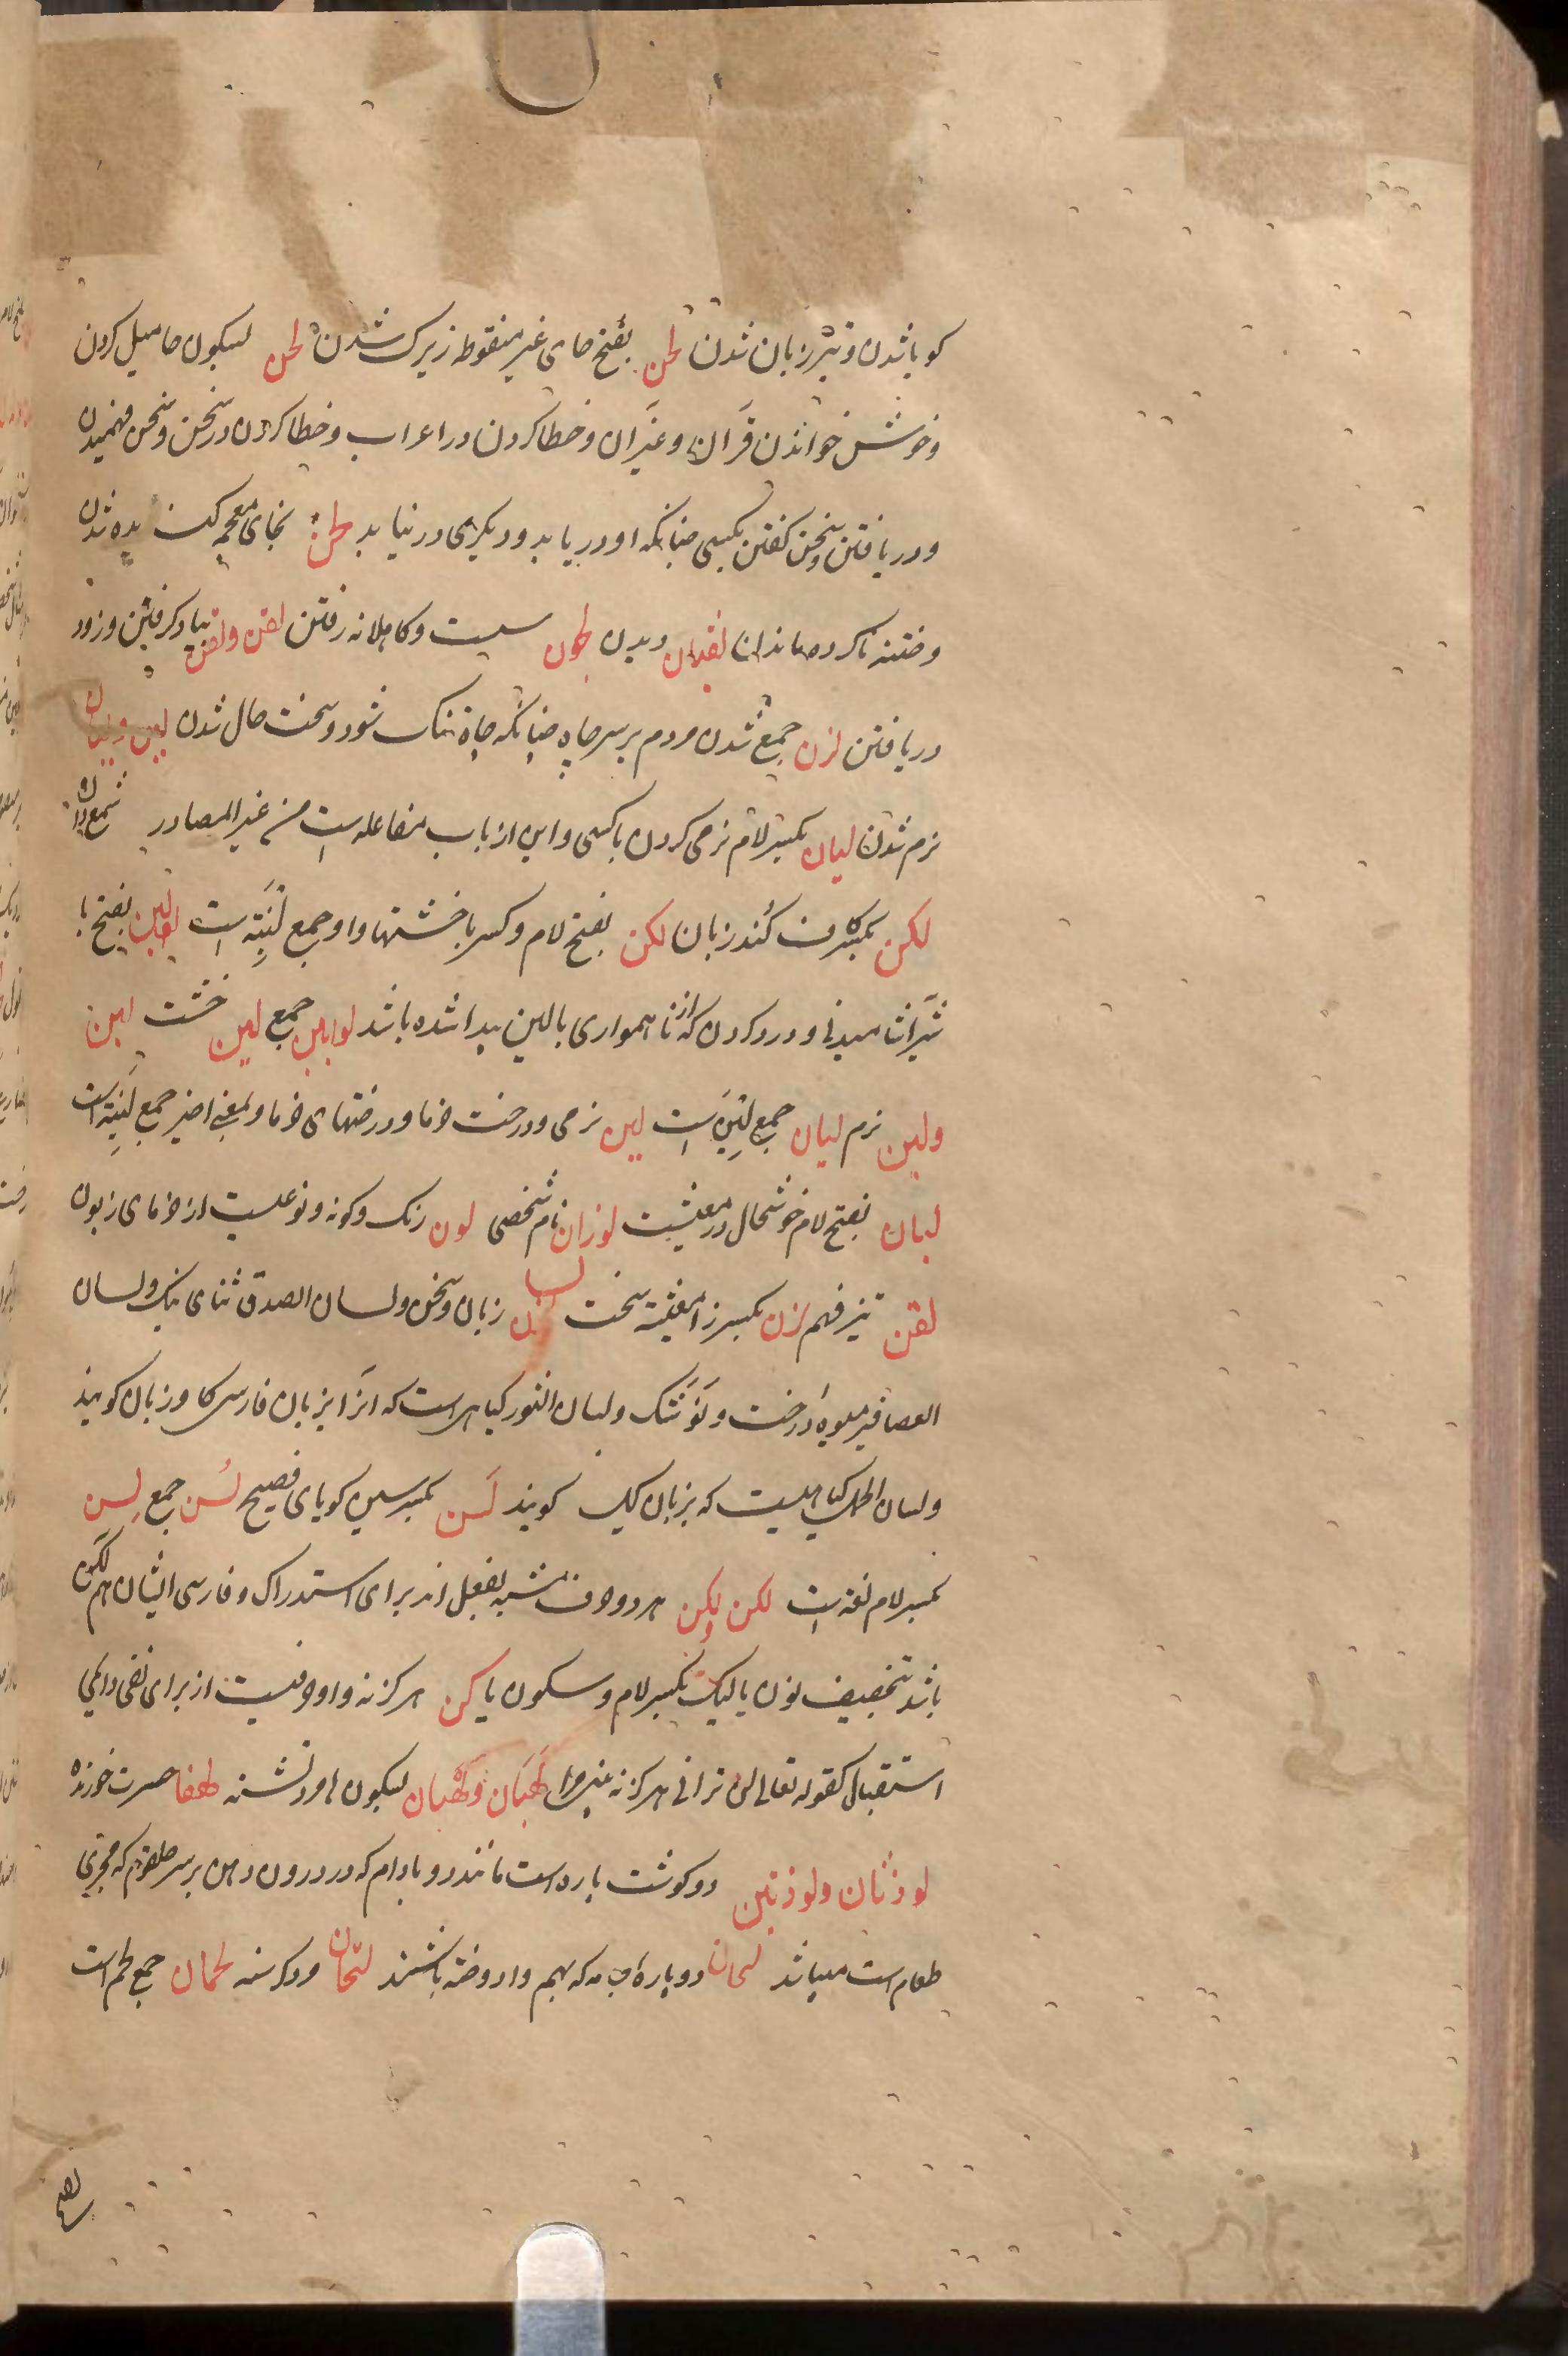 کویا شدن و تیز زبان شدن لحن بفتح حای غیر منقوطه زیرک شدن لحن بسکون حا میل کردن
و خوش خواندن قرآن و غیر آن و خطا کردن در اعراب و خطا کردن در سخن و سخن فهمیدن
و دریافتن و سخن کفتن بکسی چنانکه او دریابد و دیکری در نیابد لخن بخای معجمه کندیده شدن
و ختنه ناکرده ماندن لقیان دیدن لجون سست و کاهلانه رفتن لقن و لقن بیاد کرفتن و زود
دریافتن لزن جمع شدن مردم بر سر چاه چنانکه چاه تنک شود و سخت حال شدن لین و لیان
نرم شدن لیان بکسر لام نرمی کردن با کسی و این از باب مفاعله است من غیر المصادر
لکن بکسر کاف کند زبان لکن بفتح لام و کسر با خشتها و او جمع لبنة است لبن بفتح با
شیر اشامیدنی و درد کردن که از ناهمواری بالین پیدا شده باشد لوابین جمع لبن خشت لین
ولین نرم لیان جمع لینه است لین نرمی و درخت خرما و درختهای خرما و بمعنی اخیر جمع لینة است
لیان بفتح لام خوشحال در معیشت لوزان نام شخصی لون رنک و کونه و نوعیست از خرمای زبون
لقن تیز فهم لزن بکسر زا معیشة سخت لسان زبان و سخن و لسان الصدق ثنای نیک و لسان
العصافیر میوه درخت و لسان الثور کیاهی است که آنرا بزبان فارسی کاو زبان کویند
و لسان الحمل کیاهیست که بزبان کویند لسن بکسر سین کویای فصیح لسن جمع لسن
بکسر لام لغه است لکن ولکن هر دو حرف مشبه بفعل اند برای استدراک و فارسی ایشان هم لکن
باشد بتخفیف نون یا لیک بکسر لام و سکون یا لن هرکز نه و او حرفیست از برای نفی دایمی
استقبال کقوله تعالی لن ترانی هرکز نه بینی مرا لهبان و لهبان بسکون ها مرد تشنه لهفان حسرت خورنده
لوذتان ولوذتین دو کوشت پاره است مانند دو بادام که در درون دهن بر سر حلقوم که مجری
طعام است میباشد لحان دو پاره که بهم وا دوخته باشند لتحان مرد کرسنه لحمان جمع لحم است